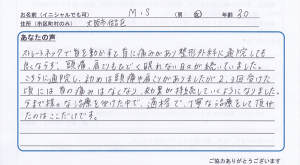 お名前（イニシャルでも可） M・S 男・女 年齢 30
住所（市区町村のみ） 大阪市住吉区
あなたの声
ストレートネックで首を動かすと首に痛みがあり整形外科に通院しても
良くならず、頭痛、肩こりもひどく眠れない日々が続いていました。
こちらに通院し、初めは頭痛や肩こりがありましたが2、3回受けた
頃には首の痛みはなくなり、効果が持続していくようになりました。
今まで様々な治療を受けた中で、適格で、丁寧な治療をして頂けた
のはここだけです。
ご協力ありがとうございます